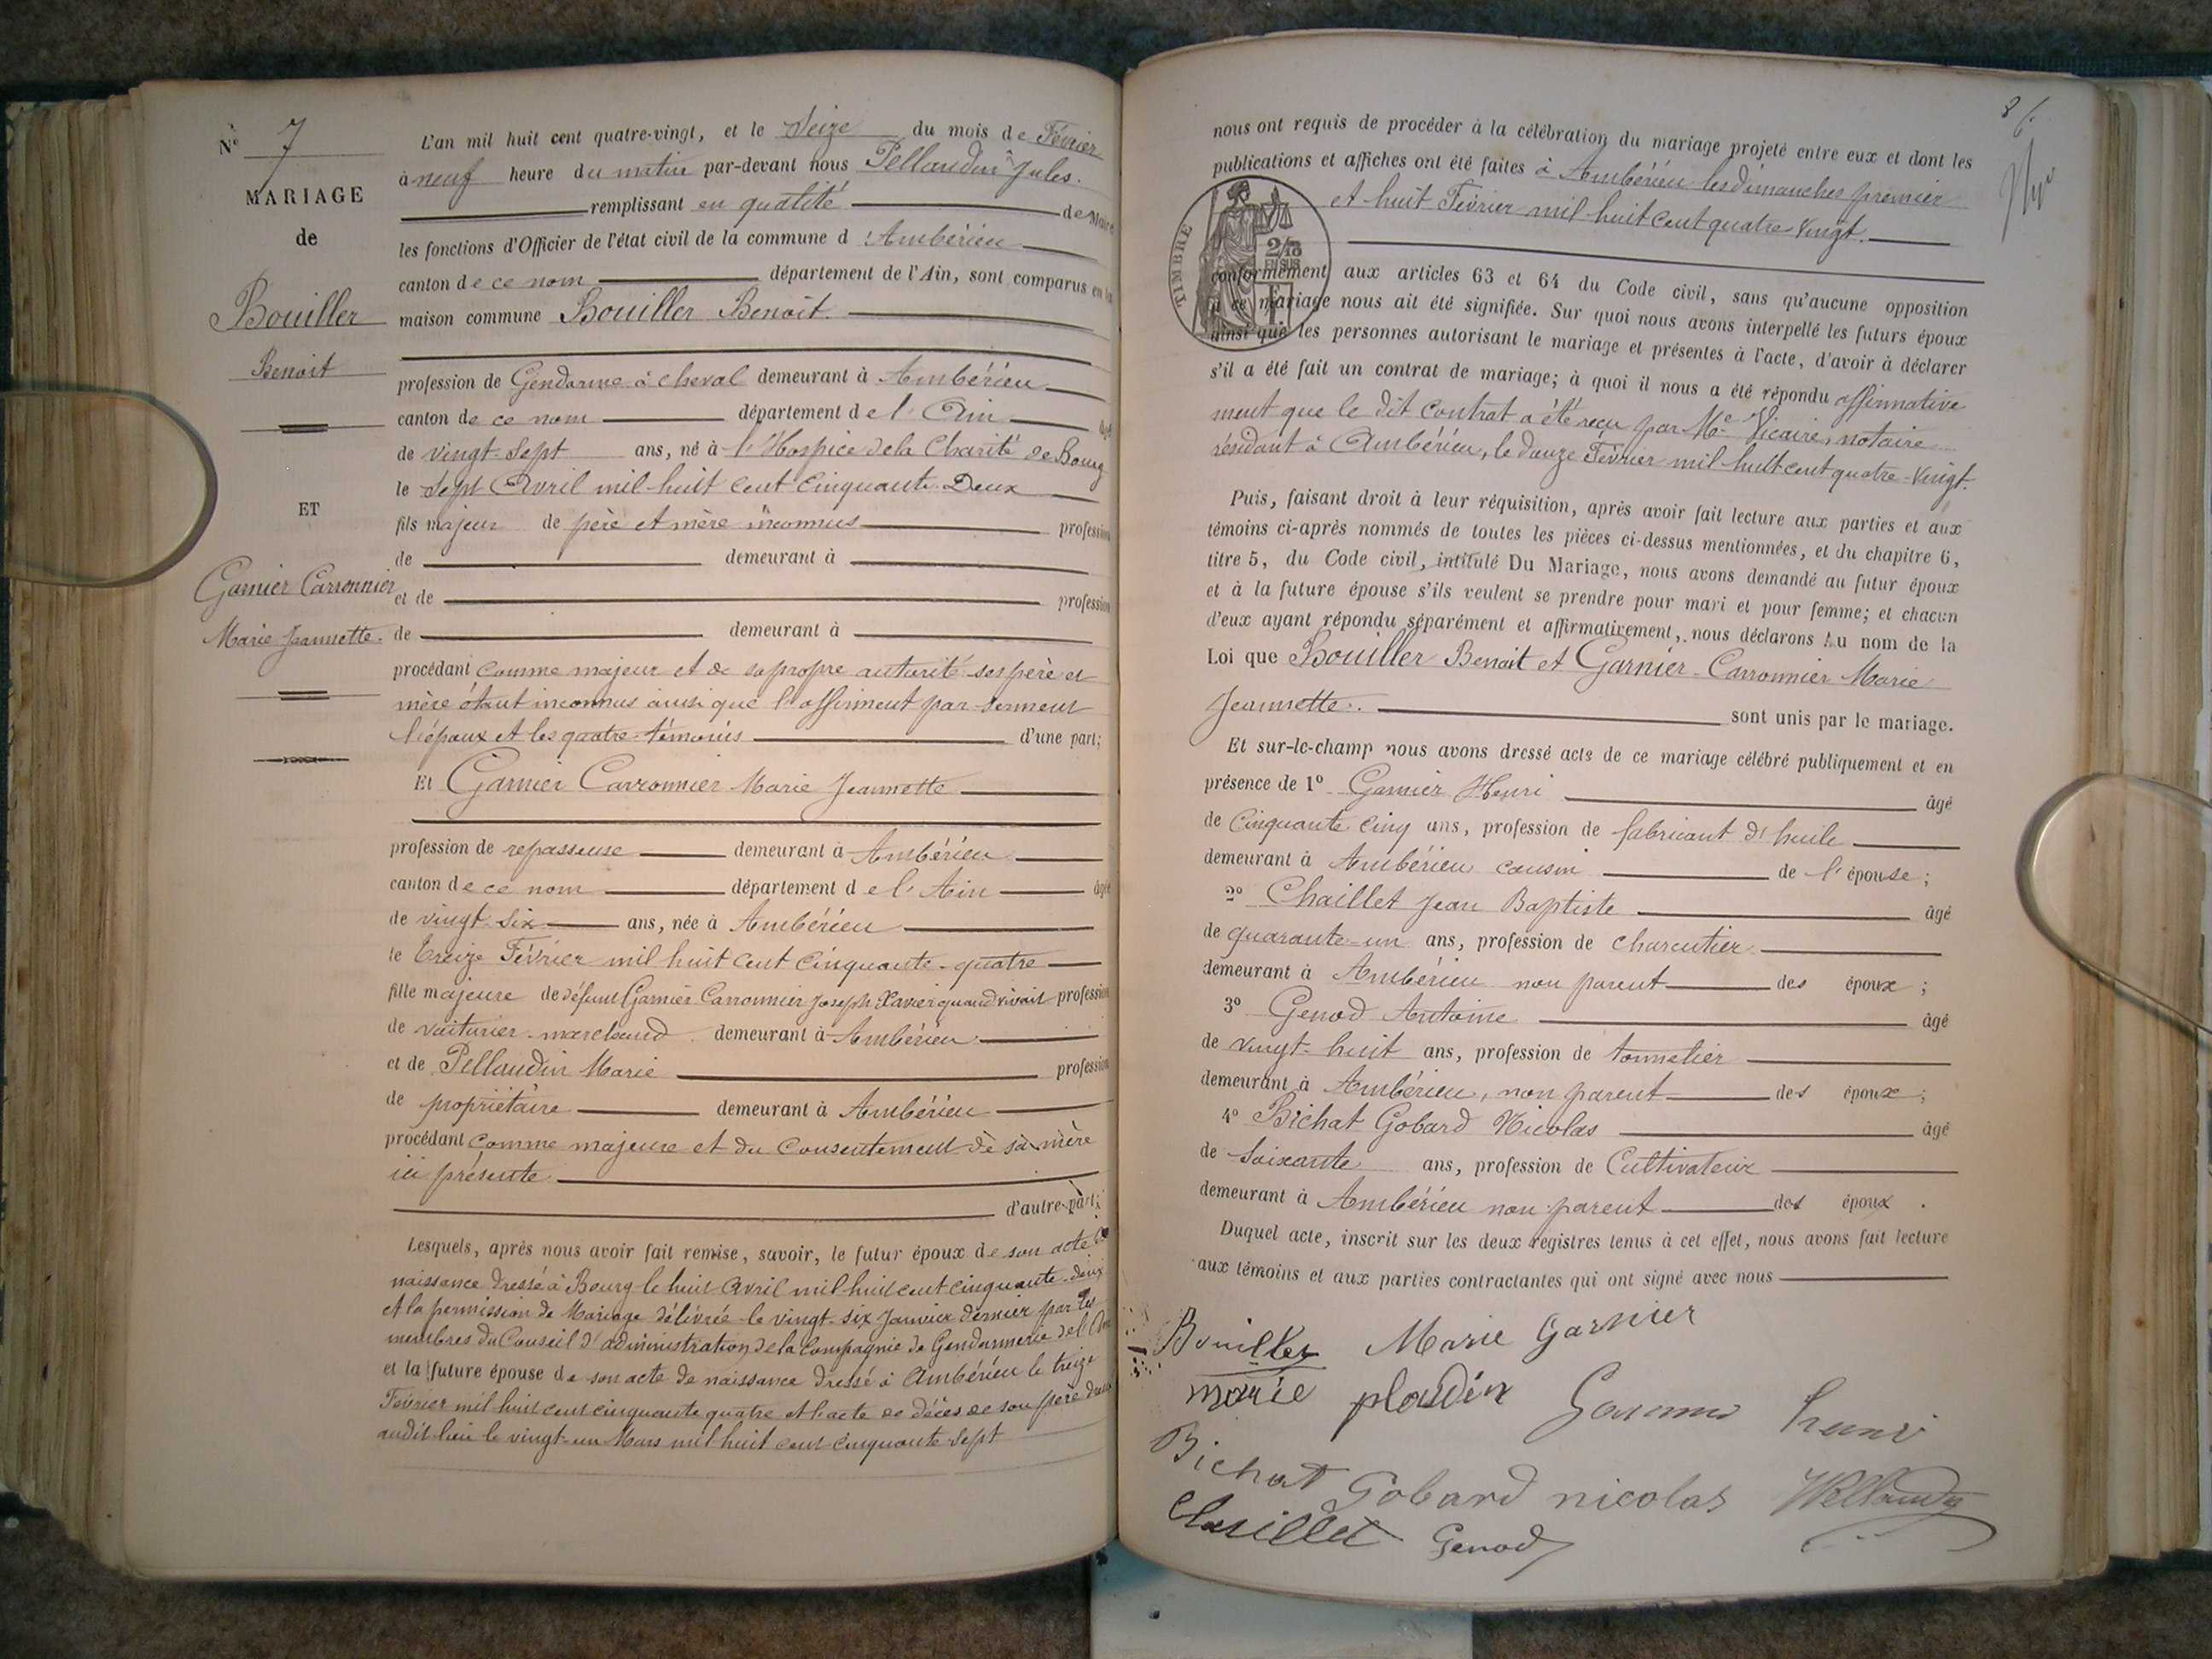 N° 7
MARIAGE
de
Bouiller
Benoit
ET
Garnier Carronnier
Marie Jeannette.
L'an mil huit cent quatre-vingt, et le Seize du mois de Février
à neuf heure du matin par-devant nous Pellaudin Jules.
remplissant en qualité de Maire
les fonctions d'Officier de l'état civil de la commune d'Ambérieu
canton de ce nom département de l'Ain, sont comparus en la
maison commune Bouiller Benoit.
profession de Gendarme à cheval demeurant à Ambérieu
canton de ce nom département de l'Ain âgé
de vingt-sept ans, né à l'Hospice de la Charité de Bourg
le sept Avril mil huit cent cinquante-Deux
fils majeur de père et mère inconnus profession
de demeurant à
et de profession
de demeurant à
procédant comme majeur et de sa propre autorité ses père et
mère étant inconnus ainsi que l'affirment par serment
l'époux et les quatre témoins d'une part;
Et Garnier Carronnier Marie Jeannette
profession de repasseuse demeurant à Ambérieu
canton de ce nom département de l'Ain âgée
de vingt-six ans, née à Ambérieu
le treize Février mil huit cent cinquante-quatre
fille majeure de défunt Garnier Carronnier Joseph Xavier quand vivait profession
de voiturier-marchand demeurant à Ambérieu
et de Pellaudin Marie profession
de propriétaire demeurant à Ambérieu
procédant comme majeure et du consentement de sa mère
ici présente
d'autre part;
Lesquels, après nous avoir fait remise, savoir, le futur époux de son acte de
naissance dressé à Bourg le huit Avril mil huit cent cinquante-deux
et la permission de Mariage délivrée le vingt-six Janvier dernier par les
membres du Conseil d'administration de la Compagnie de Gendarmerie de l'Ain
et la future épouse de son acte de naissance dressé à Ambérieu le treize
Février mil huit cent cinquante quatre et l'acte de décès de son père dressé
audit lieu le vingt-un Mars mil huit cent cinquante-sept
86
nous ont requis de procéder à la célébration du mariage projeté entre eux et dont les
publications et affiches ont été faites à Ambérieu les dimanches premier
et huit Février mil huit cent quatre-vingt.
TIMBRE
2/10
EN SUS
conformément aux articles 63 et 64 du Code civil, sans qu'aucune opposition
à ce mariage nous ait été signifiée. Sur quoi nous avons interpellé les futurs époux
ainsi que les personnes autorisant le mariage et présentes à l'acte, d'avoir à déclarer
s'il a été fait un contrat de mariage; à quoi il nous a été répondu affirmative
ment que le dit contrat a été reçu par Me Vicaire, notaire
résidant à Ambérieu, le douze Février mil huit cent quatre-vingt.
Puis, faisant droit à leur réquisition, après avoir fait lecture aux parties et aux
témoins ci-après nommés de toutes les pièces ci-dessus mentionnées, et du chapitre 6,
titre 5, du Code civil, intitulé Du Mariage, nous avons demandé au futur époux
et à la future épouse s'ils veulent se prendre pour mari et pour femme; et chacun
d'eux ayant répondu séparément et affirmativement, nous déclarons Au nom de la
Loi que Bouiller Benoit et Garnier-Carronnier Marie
Jeannette. sont unis par le mariage.
Et sur-le-champ nous avons dressé acte de ce mariage célébré publiquement et en
présence de 1° Garnier Henri âgé
de cinquante cinq ans, profession de fabricant d'huile
demeurant à Ambérieu cousin de l'épouse;
2° Chaillet Jean Baptiste âgé
de quarante-un ans, profession de charcutier
demeurant à Ambérieu non parent des époux;
3° Genod Antoine âgé
de vingt-huit ans, profession de tonnelier
demeurant à Ambérieu, non parent des époux;
4° Bichat Gobard Nicolas âgé
de soixante ans, profession de Cultivateur
demeurant à Ambérieu non parent des époux.
Duquel acte, inscrit sur les deux registres tenus à cet effet, nous avons fait lecture
aux témoins et aux parties contractantes qui ont signé avec nous
Bouiller Marie Garnier
marie plaudin henri
Bichat Gobard nicolas
Chaillet Genod